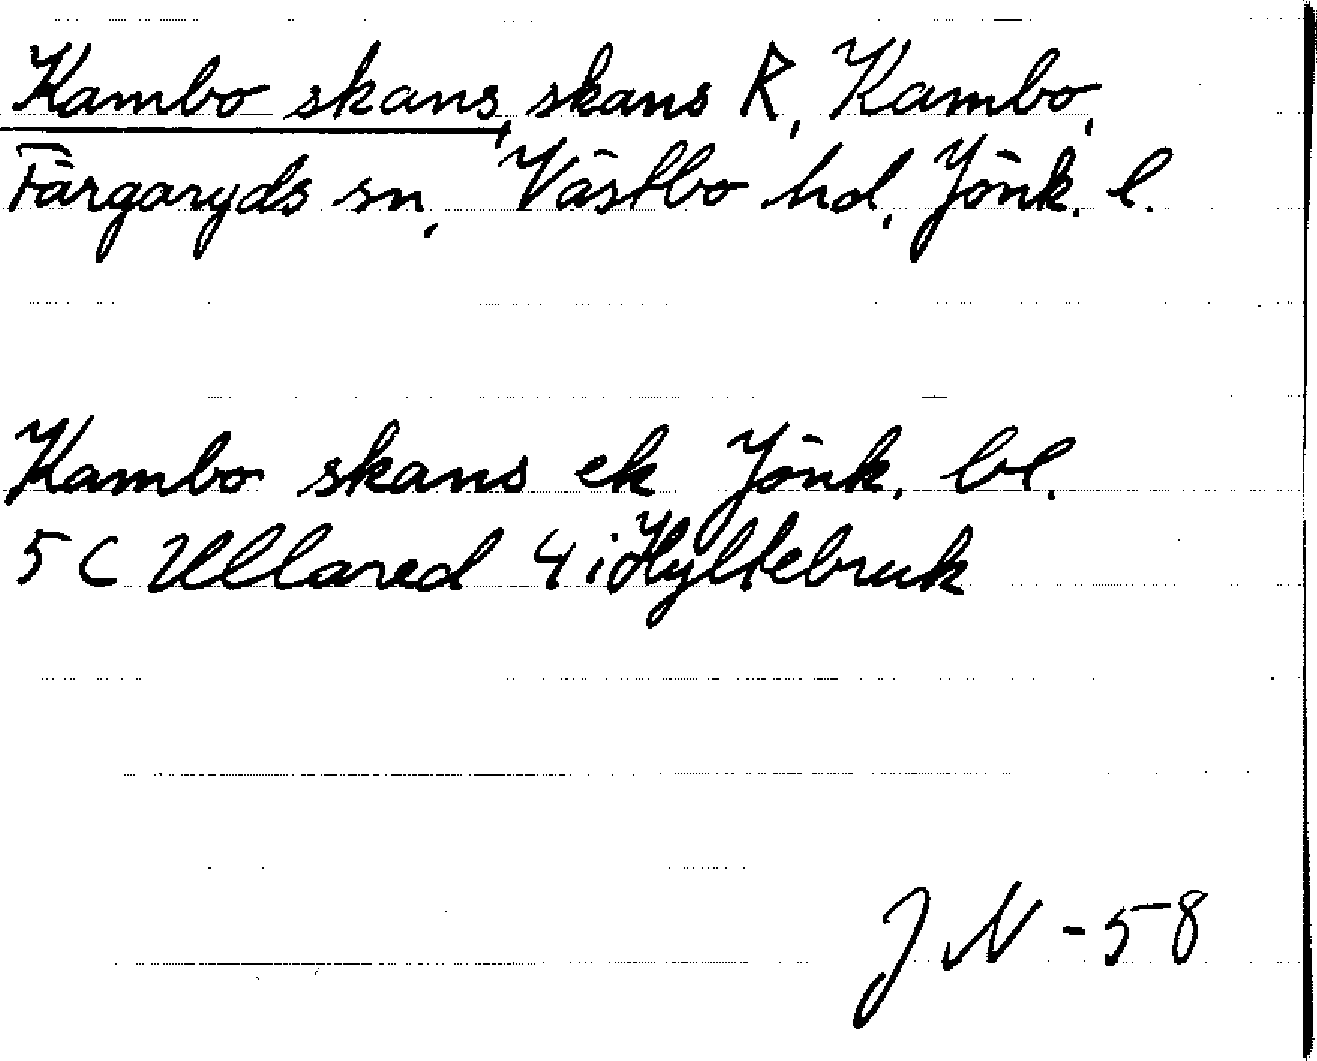 Kambo skans, skans R, Kambo,
Färgaryds sn, Västbo hd, Jönk. l.
Kambo skans ek Jönk. bl.
5 C Ullared 4 i Hyltebruk
J N - 58